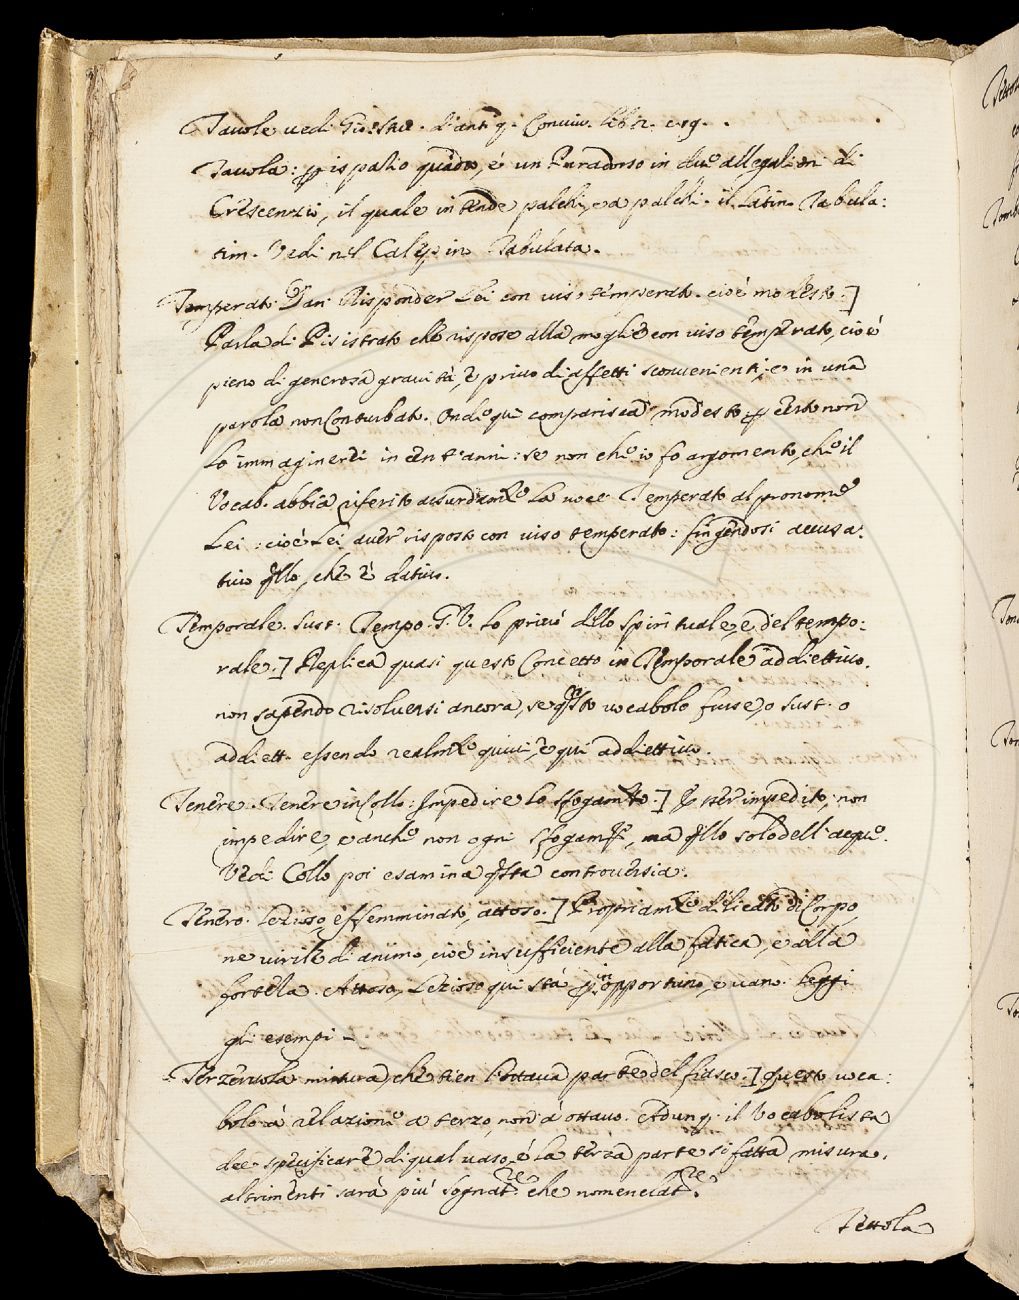 Tauole uedi Giu: d'antiq. Conuiu. lib: 2. c. 19.
Tauola: p ispatio quadro, è un Paradosso in due allegationi di
Crescenzio, il quale intende palchi, e a palchi. il Latin. Tabula:
tim. Vedi nel Calepin Tabulata.
Temperato. Dan. Risponder Lei con uiso temperato. cioè modesto.]
Parla di Pisistrato che rispose alla moglie con uiso temperato, cioè
pieno di generosa grauità, e priuo di affetti sconuenienti, e in una
parola non Conturbato. Onde qui comparisca modesto p certo non
Lo immaginerei in cent'anni: se non che io fo argomento, che il
Vocab. abbia riferito assurdamte La uoce Temperato al pronome
Lei: cioè Lei auer risposto con uiso temperato: fingendosi accusa:
tiuo qllo, che è datiuo.
Temporale. Sust. Tempo. G.V. Lo priuò dello Spirituale, e del tempo:
rale.] Replica quasi questo Concetto in Temporale addiettiuo.
non sapendo risoluersi ancora, se qsto uocabolo fusse, o sust. o
addiett. essendo realmte quiui, e qui addiettiuo.
Tenere. Tenere in Collo: Impedire Lo sfogamto.] P esser impedito, non
impedire, e anche non ogni sfogamto, ma qllo solo dell'acque.
Vedi Collo poi esamina qsta controuersia.
Tenero. Lezioso, effemminato, attoso.] Propriamte dilicato di Corpo,
ne uirile di animo, cioè insufficiente alla fatica, e alla
fortezza. Attoso, Lezioso qui stà p inopportuno, e uano. Leggi
gli esempi.
Terzeruola misura, che tien l'ottaua parte del fiasco.] questo uoca:
bolo à relazione a terzo, non à ottauo. Adunq; il Vocabolista
dee specificare di qual uaso, è La terza parte sì fatta misura.
altrimenti sarà più sognatre che nomenclatre.
Tettola